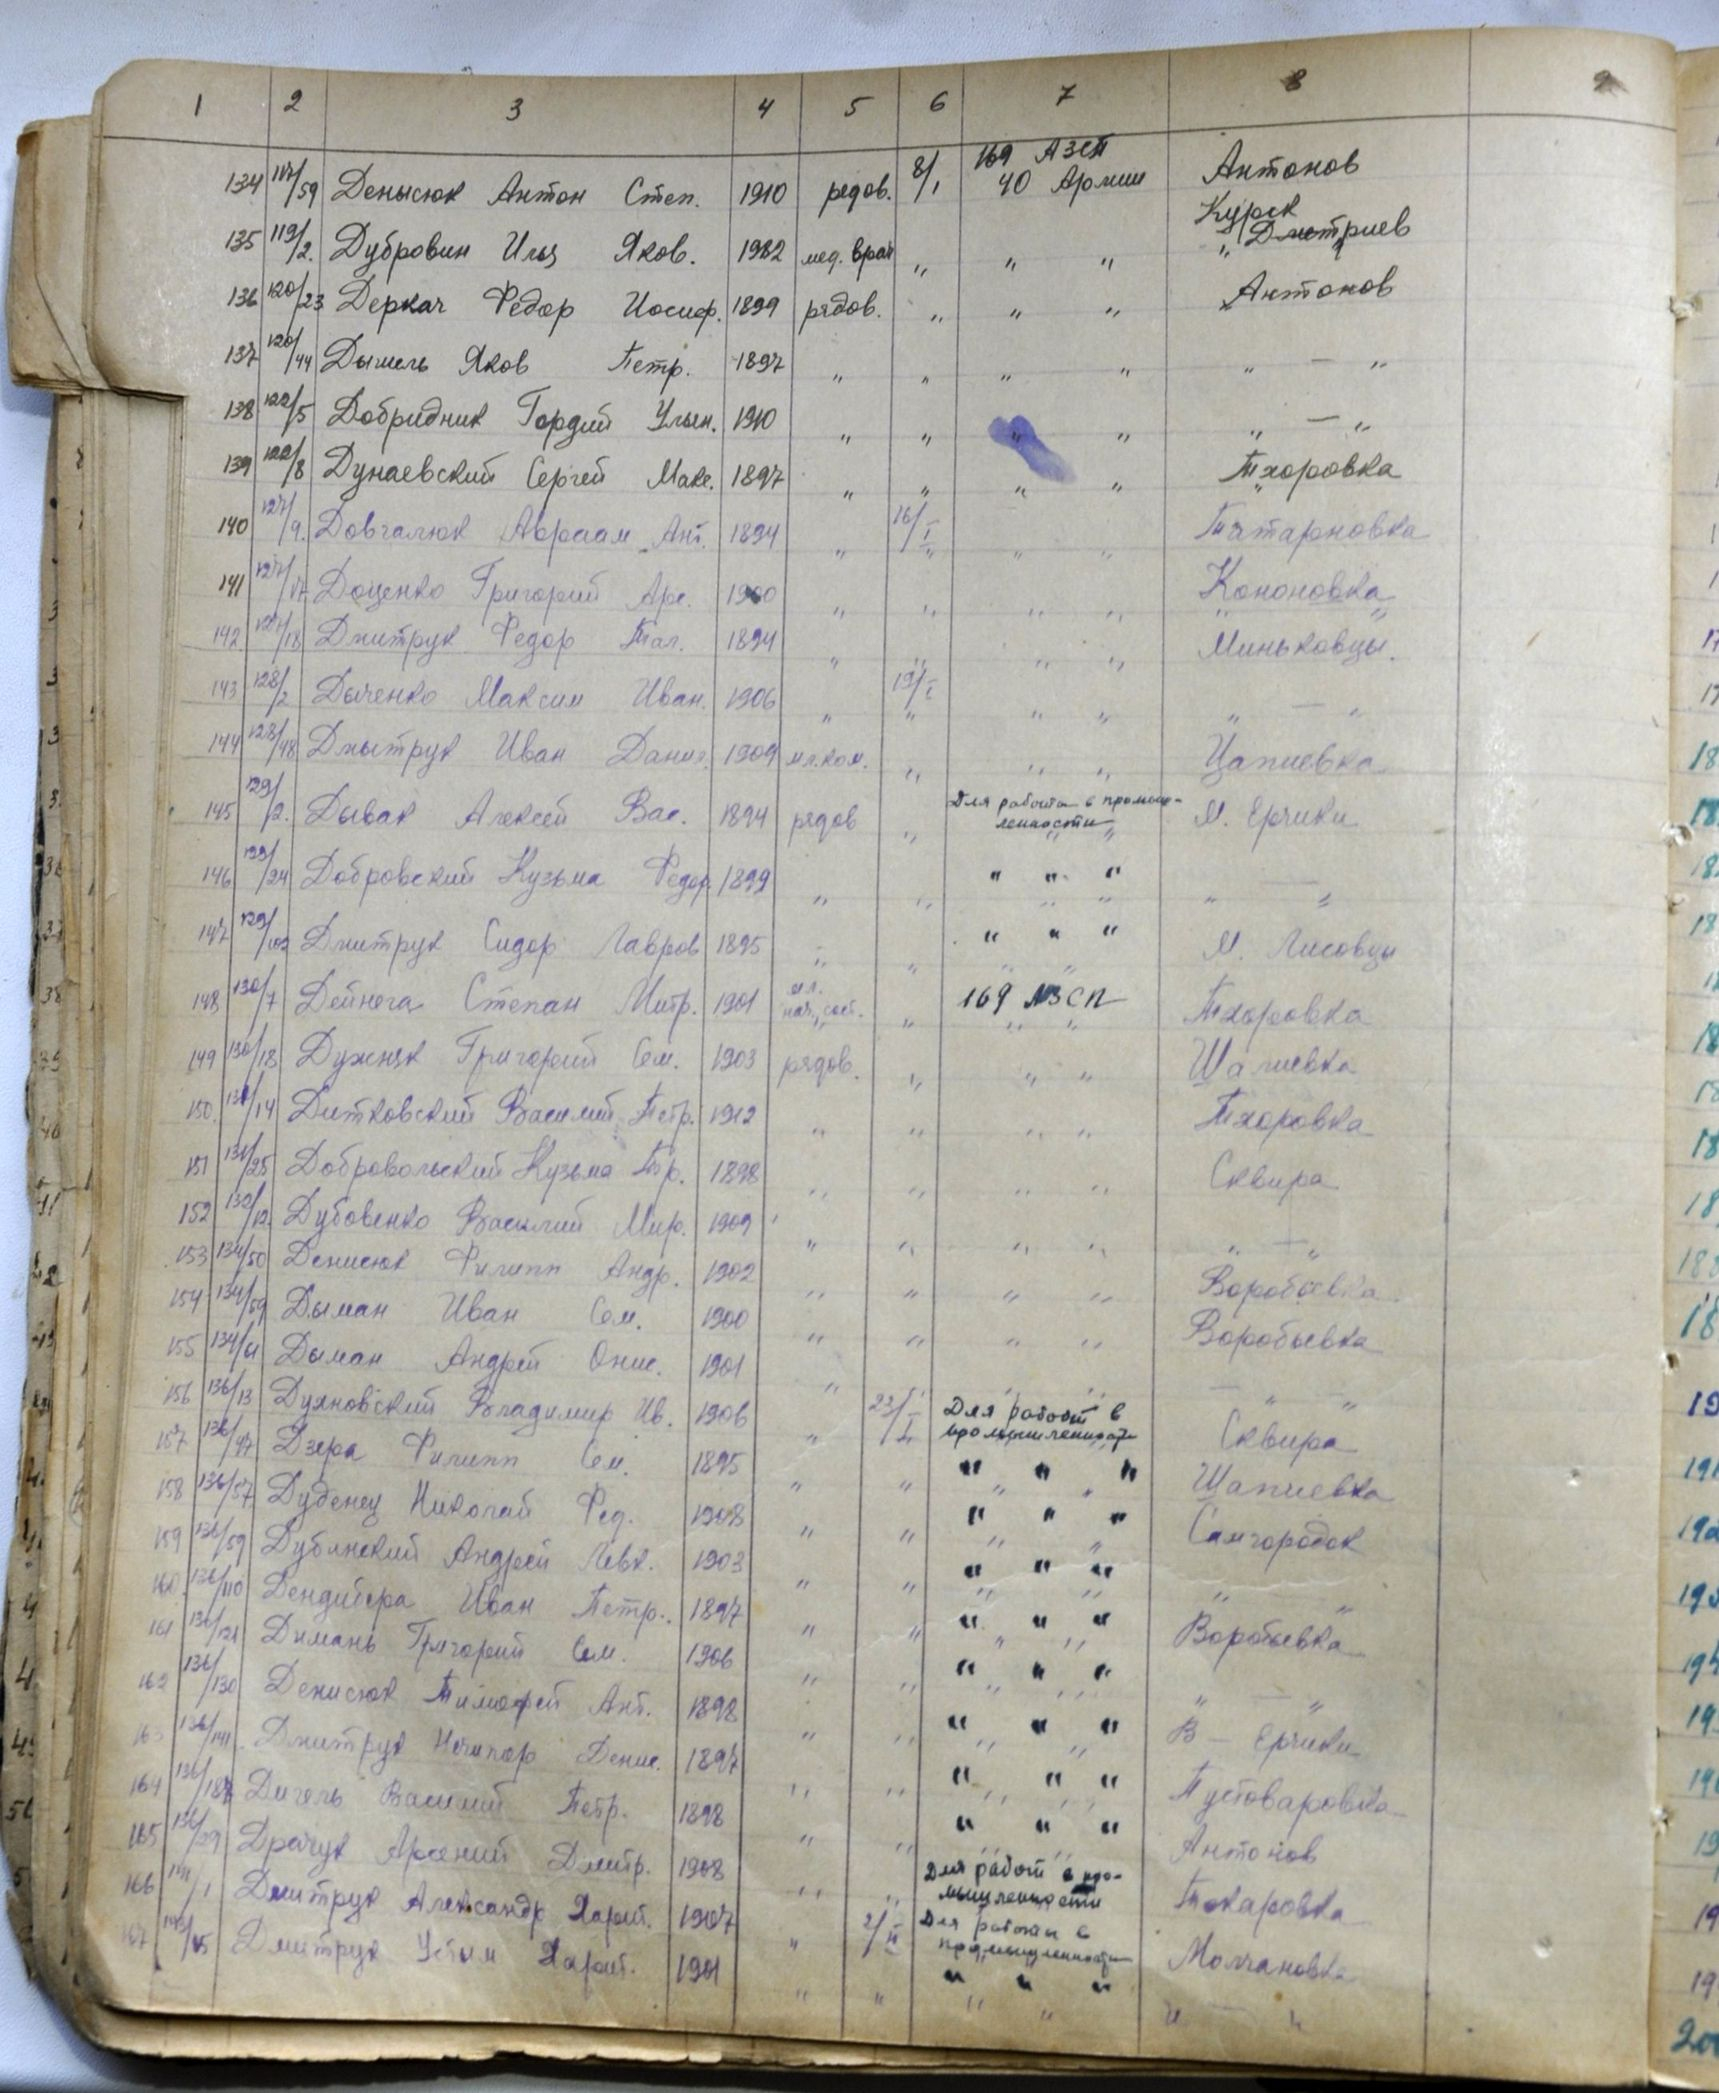 1 2 3 4 5 6 7 8 9
134 117/59 Денысюк Антон Степ. 1910 редов. 8/1 169 АЗСП 40 Армии Антонов
Курск
135 119/2. Дубровин Илья Яков. 1982 мед. врач " " " " Дмитриев
136 120/23 Деркач Федор Иосиф. 1899 рядов. " " " Антонов
137 120/44 Дышель Яков Петр. 1897 " " " " " — "
138 122/5 Добридник Гордий Ульян. 1910 " " " " " — "
139 122/8 Дунаевский Сергей Макс. 1897 " " " " Тхоровка
140 127/9. Довгалюк Авраам Ант. 1894 " 16/I " " Татариновка
141 127/17 Доценко Григорий Арс. 1900 " " " " Кононовка
142 127/18 Дмитрук Федор 1894 " " " " Миньковцы.
143 128/2 Дыченко Максим Иван. 1906 " 19/I " " " — "
144 128/48 Дмытрук Иван Данил. 1909 мл.ком. " " "
145 129/2. Дывак Алексей Вас. 1894 рядов " Для работы в промыш-
ленности М. Ерчики
146 129/24 Добровский Кузьма Федор. 1899 " " " " " " — "
147 129/102 Дмитрук Сидор Лавров 1895 " " " " " М. Лисовцы
148 130/7 Дейнега Степан Митр. 1901 мл. нач. сост. " 169 АЗСП Тхоровка
149 130/18 Дужняк Григорий Сем. 1903 рядов. " " " Шапиевка
150. 131/14 Дитковский Василий Петр. 1912 " " " " Тхоровка
151 131/25 Добровольский Кузьма 1898 " " " " Сквира
152 132/12. Дубовенко Василий Мир. 1909 " " " " " — "
153 134/50 Денисюк Филипп Андр. 1902 " " " " Воробьевка
154 134/59 Дыман Иван Сем. 1900 " " " " Воробьевка
155 134/61 Дыман Андрей Онис. 1901 " " " " — " — "
156 136/13 Дуяновский Владимир Ив. 1906 " 23/I Для работ в
промышленности Сквира
157 136/47 Дзера Филипп Сем. 1895 " " " " " Шапиевка
158 136/57 Дуденец Николай Фед. 1908 " " " " " Самгородок
159 136/59 Дубинский Андрей Левк. 1903 " " " " " " "
160. 136/110 Дендибера Иван Петр. 1897 " " " " " Воробьевка
161 136/121 Димань Григорий Сем. 1906 " " " " " " — "
162 136/130 Денисюк Тимофей Ант. 1898 " " " " " В — Ерчики
163 136/141 Дмитрук Ничипор Денис. 1897 " " " " " Пустоваровка
164 136/187 Дигель Василий Петр. 1898 " " " " " Антонов
165 136/29 Драчук Арсений Дмитр. 1908 " " Для работ в про-
мышленности Токаровка
166 141/1 Дмитрук Александр Харит. 1907 " 2/II Для работы в
промышленности Молчановка
167 145/15 Дмитрук Устим Харит. 1901 " " " " " " — "